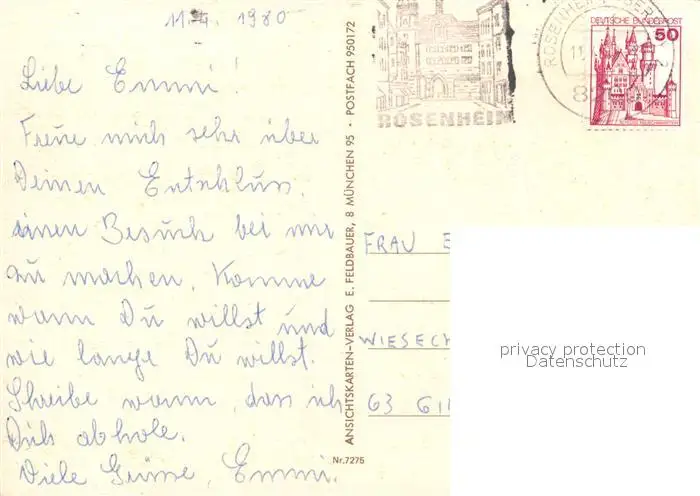 11.4. 1980
Liebe Emmi!
Freue mich sehr über
Deinen Entschluss,
einen Besuch bei mir
zu machen. Komme
wann Du willst und
wie lange Du willst.
Schreibe wann, dass ich
Dich abhole.
Viele Grüsse, Emmi.
ANSICHTSKARTEN-VERLAG E. FELDBAUER, 8 MÜNCHEN 95 · POSTFACH 950172
Nr. 7275
ROSENHEIM
ROSENHEIM
11.
8
DEUTSCHE BUNDESPOST
50
FRAU E
WIESECK
63 GI
privacy protection
Datenschutz